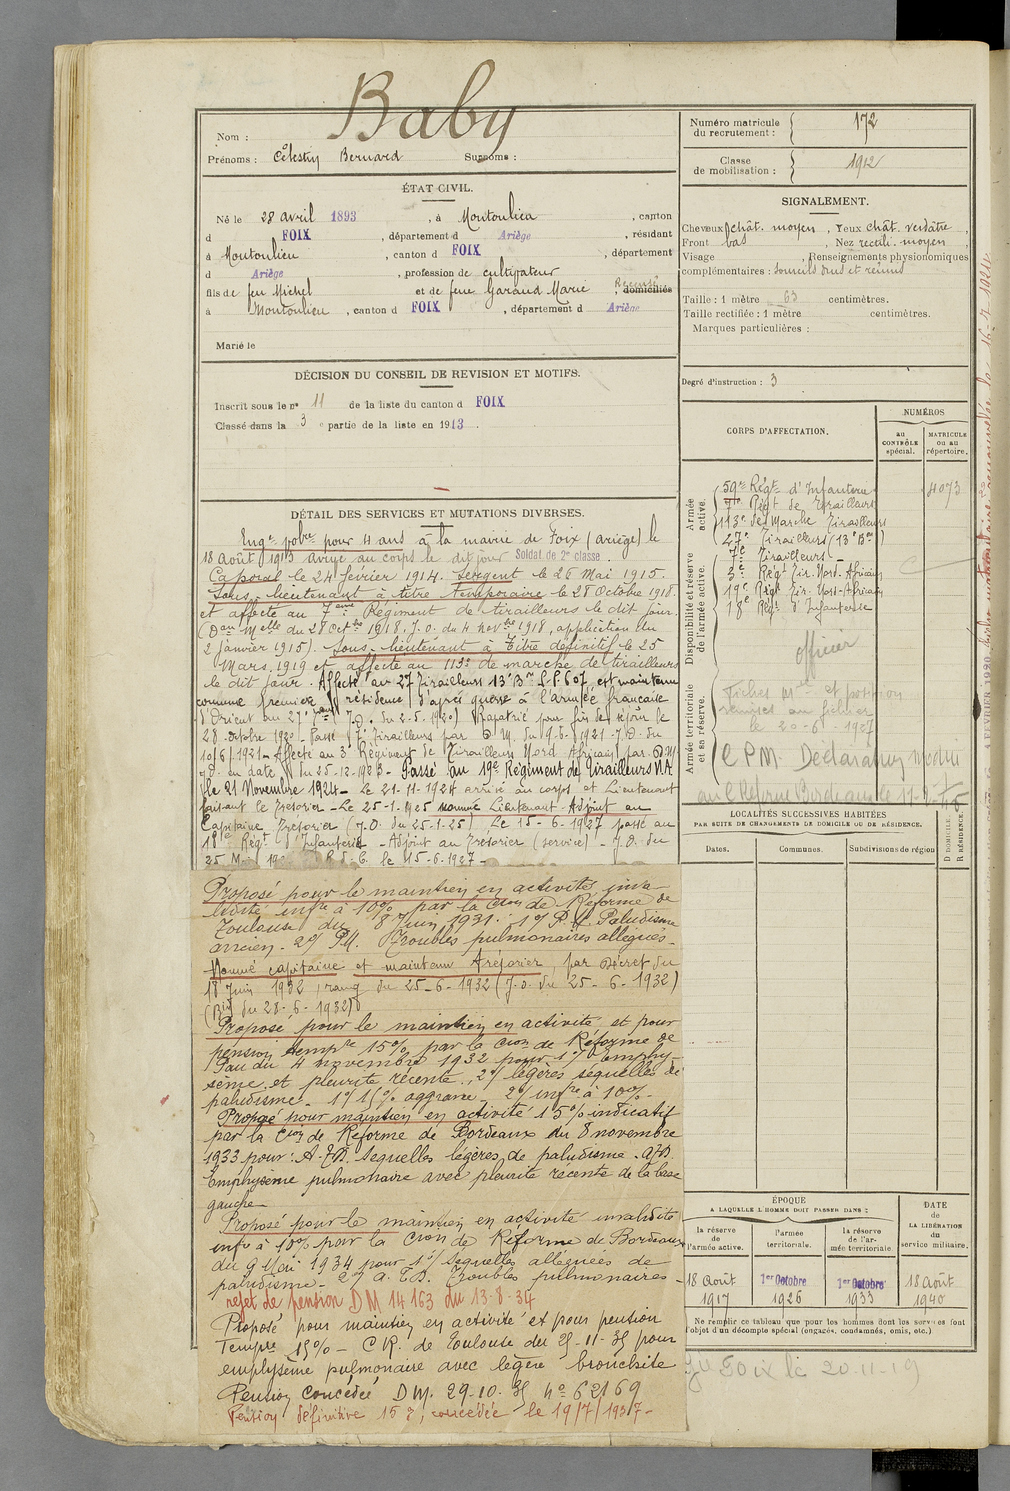 Baby
Nom :
Prénoms : Célestin Bernard Surnoms :
ÉTAT CIVIL.
Né le 28 avril 1893, à Montoulieu, canton
d FOIX, département d Ariège, résidant
à Montoulieu, canton d FOIX, département
d Ariège, profession de cultivateur
fils de feu Michel et de feue Garaud Marie, domiciliés
à Montoulieu, canton d FOIX, département d Ariège
Marié le
DÉCISION DU CONSEIL DE REVISION ET MOTIFS.
Inscrit sous le n° 11 de la liste du canton d FOIX
Classé dans la 3 e partie de la liste en 1913.
DÉTAIL DES SERVICES ET MUTATIONS DIVERSES.
Eng. volre pour 4 ans à la mairie de Foix (Ariège) le
18 août 1913 arrivé au corps le dit jour Soldat de 2e classe
Caporal le 24 février 1914. Sergent le 26 Mai 1915.
Sous-lieutenant à titre temporaire le 28 Octobre 1918.
et affecté au 7ème Régiment de tirailleurs le dit jour.
(Don Melle du 28 octbre 1918, J.O. du 4 novbre 1918, application du
2 janvier 1915). Sous-lieutenant à titre définitif le 25
Mars 1919 et affecté au 113e de marche de tirailleurs
le dit jour. Affecté au 27 Tirailleurs 13e Bon S.P. 607 est maintenu
comme première résidence d'après guerre à l'armée française
d'Orient au 27e J.O. du 2-5-1920) Rapatrié pour fin de séjour le
28 octobre 1920 - Passé 7e Tirailleurs par D.M. du 9-6-1921 - J.O. du
10/6/1921 - Affecté au 3e Régiment de Tirailleurs Nord Africains par D.M.
J.O. en date du 25-12-1923 - Passé au 19e Régiment de Tirailleurs NA
le 21 Novembre 1924 - Le 21-11-1924 arrivé au corps et Lieutenant
faisant le trésorier - Le 25-1-1925 nommé Lieutenant Adjoint au
Capitaine Trésorier (J.O. du 25-1-25) Le 15-6-1927 passé au
18e Régt d'Infanterie - Adjoint au Trésorier (service) - J.O. du
25 Mai le 15-6-1927 -
Proposé pour le maintien en activité, inva-
lidité infre à 10% par la Cion de Réforme de
Toulouse du 8 Juin 1931. 1°/ P.M. Paludisme
ancien. 2°/ P.M. Troubles pulmonaires allégués -
Nommé capitaine et maintenu Trésorier, par Décret du
18 Juin 1932, rang du 25-6-1932 (J.O. du 25-6-1932)
du 28-6-1932)
Proposé pour le maintien en activité et pour
pension tempre 15% par la Cion de Réforme de
Pau du 4 novembre 1932 pour 1°/ emphy-
sème et pleurite récente, 2°/ légères séquelles de
paludisme - 1°/ 15% aggravé - 2°/ infre à 10% -
Proposé pour maintien en activité 15% indicatif
par la Cion de Réforme de Bordeaux du 8 novembre
1933 pour : séquelles légères de paludisme.
Emphysème pulmonaire avec pleurite récente de la base
gauche -
Proposé pour le maintien en activité invalidité
infre à 10% pour la Cion de Réforme de Bordeaux
du 9 Mai 1934 pour 1°/ séquelles alléguées de
paludisme - 2°/ Troubles pulmonaires -
rejet de pension DM 14 163 du 13-8-34
Proposé pour maintien en activité et pour pension
Tempre 15% - C.R. de Toulouse du 25-11-35 pour
emphysème pulmonaire avec légère bronchite
Pension concédée D.M. 29-10-35 N° 62169
Pension définitive 15%, concédée le 19/7/1937 -
Numéro matricule du recrutement : 172
Classe de mobilisation : 1912
SIGNALEMENT.
Cheveux chât. moyen, Yeux chât. verdâtre,
Front bas, Nez rectil. moyen,
Visage, Renseignements physionomiques
complémentaires : sourcils drus et réunis
Taille : 1 mètre 63 centimètres.
Taille rectifiée : 1 mètre centimètres.
Marques particulières :
Degré d'instruction : 3
CORPS D'AFFECTATION.
NUMÉROS
au CONTRÔLE spécial.
MATRICULE ou au répertoire.
Armée active.
59e Régt d'Infanterie 4073
7e Régt de Tirailleurs
113e de Marche Tirailleurs
27e Tirailleurs (13e Bon)
Disponibilité et réserve de l'armée active.
7e Tirailleurs -
3e Régt Tir. Nord-Africains
19e Régt Tir. Nord-Africains
18e Régt d'Infanterie
officier
Armée territoriale et sa réserve.
Fiches Mle et position
remises au fichier
le 20-6-1927
C P M. Déclaration modèle
LOCALITÉS SUCCESSIVES HABITÉES
PAR SUITE DE CHANGEMENTS DE DOMICILE OU DE RÉSIDENCE.
Dates. Communes. Subdivisions de région
D DOMICILE. R RÉSIDENCE.
ÉPOQUE
A LAQUELLE L'HOMME DOIT PASSER DANS :
la réserve de l'armée active.
l'armée territoriale.
la réserve de l'armée territoriale.
DATE de LA LIBÉRATION du service militaire.
18 août 1917
1er Octobre 1926
1er Octobre 1933
18 août 1940
Ne remplir ce tableau que pour les hommes dont les services font
l'objet d'un décompte spécial (engagés, condamnés, omis, etc.)
Foix le 20-11-19